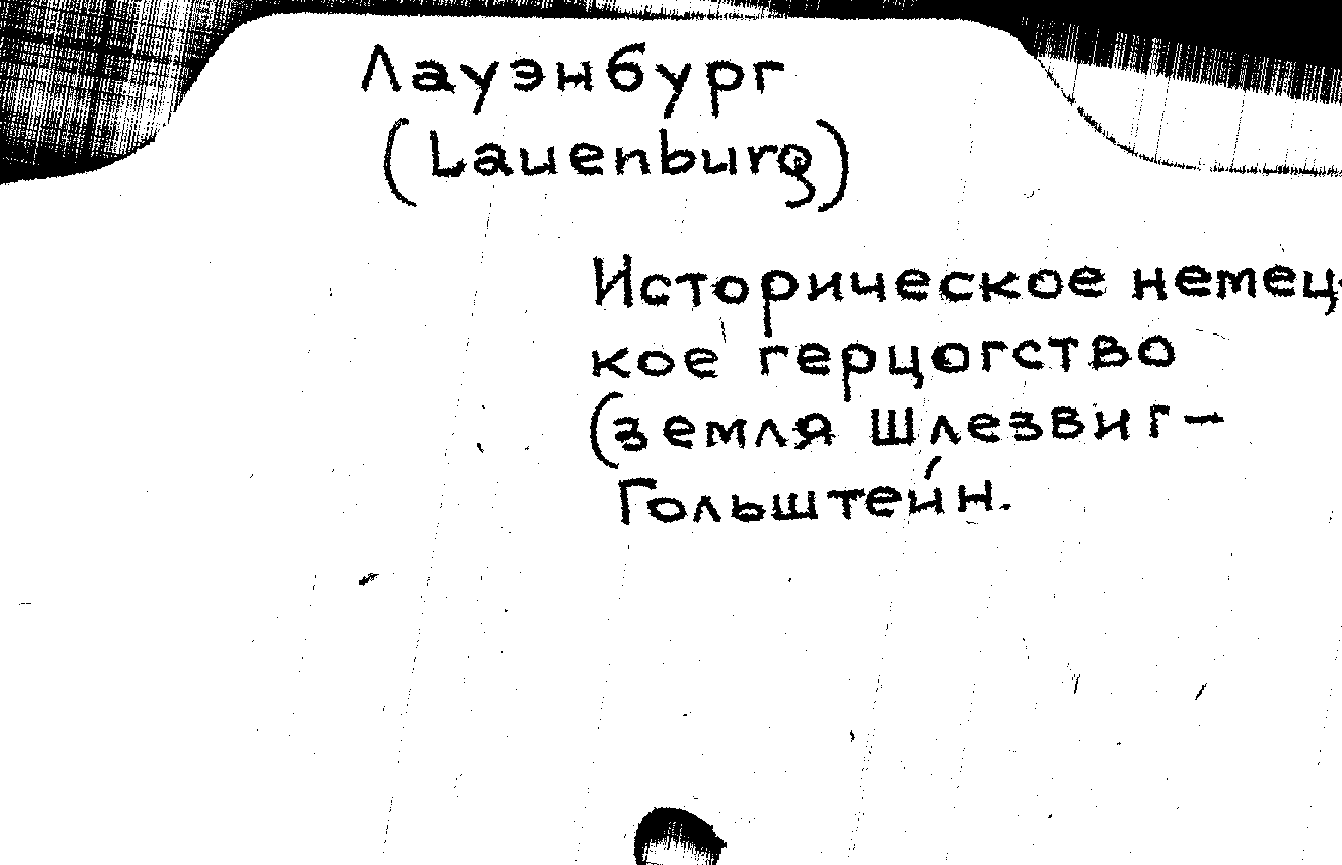 Лауэнбург
(Lauenburg)
Историческое немец-
кое герцогство
(земля Шлезвиг-
Гольштейн.